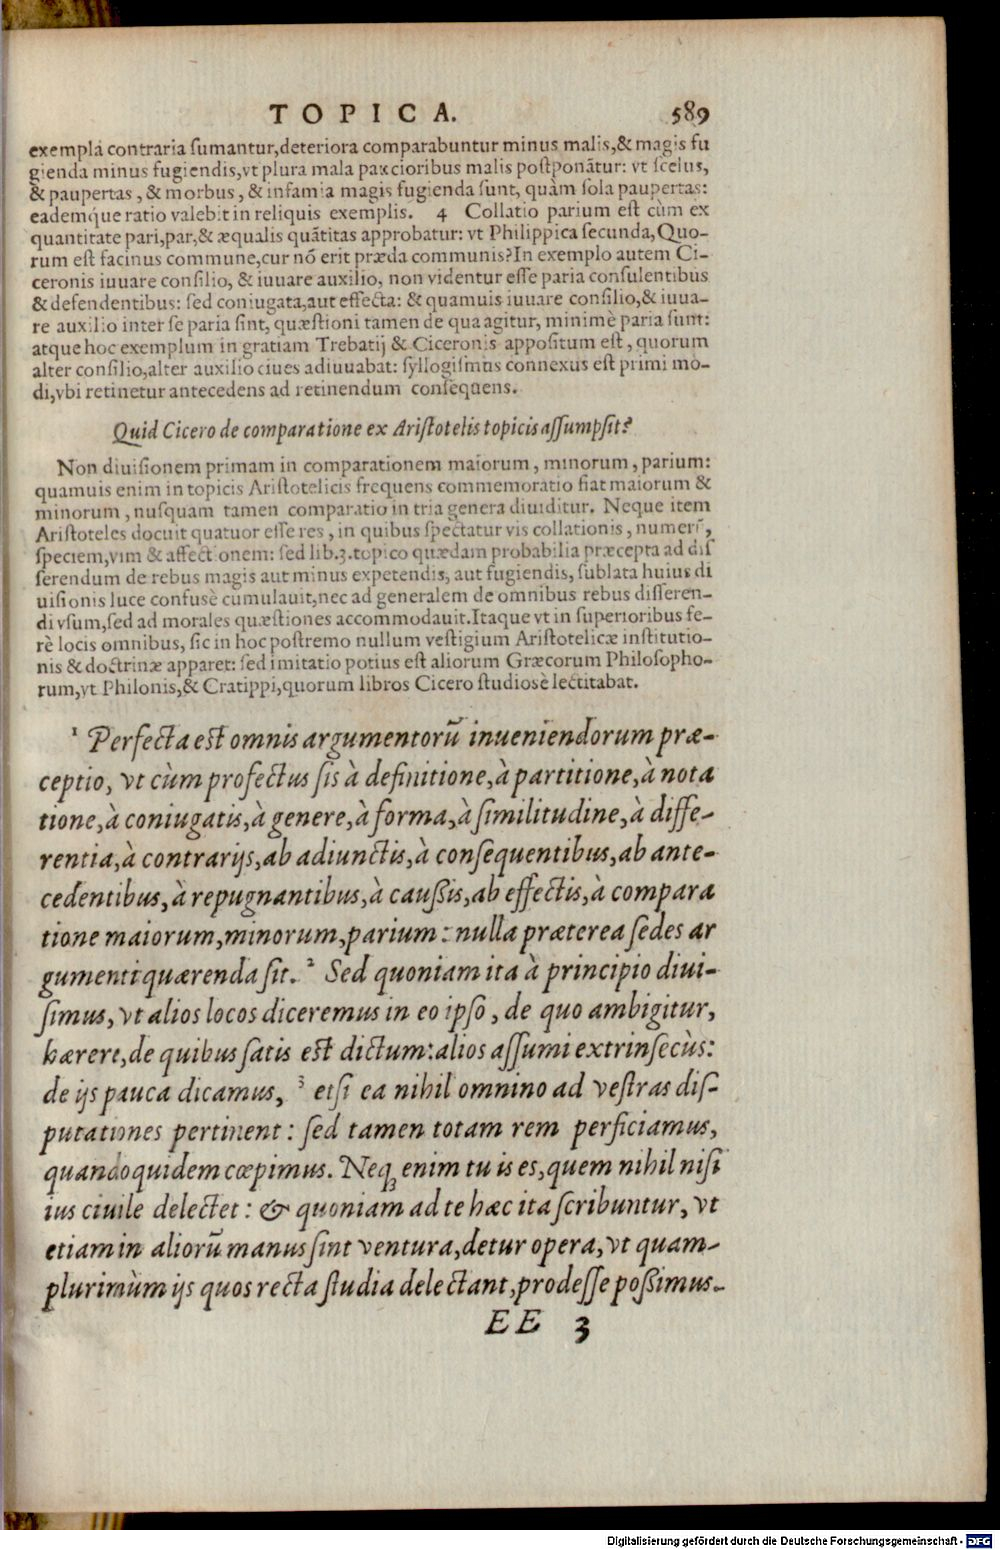 TOPICA. 589
exempla contraria sumantur,deteriora comparabuntur minus malis,& magis fu
gienda minus fugiendis,vt plura mala paucioribus malis postponātur: vt scelus,
& paupertas, & morbus, & infamia magis fugienda sunt, quàm sola paupertas:
eademque ratio valebit in reliquis exemplis. 4 Collatio parium est cùm ex
quantitate pari,par,& æqualis quātitas approbatur: vt Philippica secunda,Quo-
rum est facinus commune,cur nō erit præda communis?In exemplo autem Ci-
ceronis iuuare consilio, & iuuare auxilio, non videntur esse paria consulentibus
& defendentibus: sed coniugata,aut effecta: & quamuis iuuare consilio,& iuua-
re auxilio inter se paria sint, quæstioni tamen de qua agitur, minimè paria sunt:
atque hoc exemplum in gratiam Trebatij & Ciceronis appositum est, quorum
alter consilio,alter auxilio ciues adiuuabat: syllogismus connexus est primi mo-
di,vbi retinetur antecedens ad retinendum consequens.
Quid Cicero de comparatione ex Aristotelis topicis assumpsit?
Non diuisionem primam in comparationem maiorum, minorum, parium:
quamuis enim in topicis Aristotelicis frequens commemoratio fiat maiorum &
minorum, nusquam tamen comparatio in tria genera diuiditur. Neque item
Aristoteles docuit quatuor esse res, in quibus spectatur vis collationis, numerū,
speciem,vim & affectionem: sed lib.3.topico quædam probabilia præcepta ad dis
serendum de rebus magis aut minus expetendis, aut fugiendis, sublata huius di
uisionis luce confusè cumulauit,nec ad generalem de omnibus rebus disseren-
di vsum,sed ad morales quæstiones accommodauit.Itaque vt in superioribus fe-
rè locis omnibus, sic in hoc postremo nullum vestigium Aristotelicæ institutio-
nis & doctrinæ apparet: sed imitatio potius est aliorum Græcorum Philosopho-
rum,vt Philonis,& Cratippi,quorum libros Cicero studiosè lectitabat.
1 Perfecta est omnis argumentorū inueniendorum præ-
ceptio, vt cùm profectus sis à definitione,à partitione,à nota
tione,à coniugatis,à genere,à forma,à similitudine,à diffe-
rentia,à contrarijs,ab adiunctis,à consequentibus,ab ante-
cedentibus,à repugnantibus,à caußis,ab effectis,à compara
tione maiorum,minorum,parium: nulla præterea sedes ar
gumenti quærenda sit. 2 Sed quoniam ita à principio diui-
simus, vt alios locos diceremus in eo ipso, de quo ambigitur,
hærere,de quibus satis est dictum:alios assumi extrinsecùs:
de ijs pauca dicamus, 3 etsi ea nihil omnino ad vestras dis-
putationes pertinent: sed tamen totam rem perficiamus,
quandoquidem cœpimus. Neq; enim tu is es,quem nihil nisi
ius ciuile delectet: & quoniam ad te hæc ita scribuntur, vt
etiam in aliorū manus sint ventura,detur opera,vt quam-
plurimùm ijs quos recta studia delectant,prodesse poßimus.
EE 3
Digitalisierung gefördert durch die Deutsche Forschungsgemeinschaft - DFG